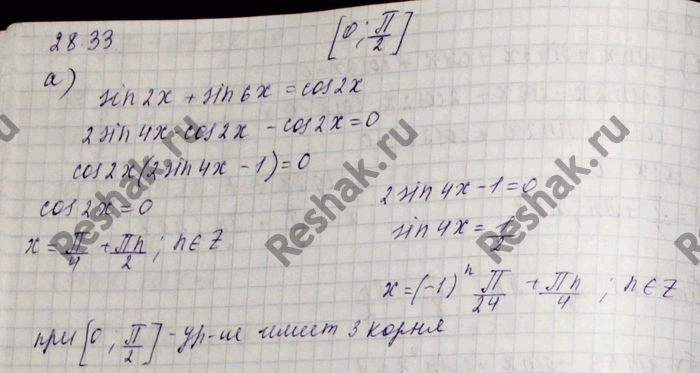 28.33 [0; π/2]
а)
sin2x + sin6x = cos2x
2sin4x·cos2x - cos2x = 0
cos2x(2sin4x - 1) = 0
cos2x = 0
x = π/4 + πn/2; n ∈ Z
2sin4x - 1 = 0
sin4x = 1/2
x = (-1)^n π/24 + πn/4; n ∈ Z
при [0, π/2] - ур-ие имеет 3 корня
Reshak.ru
Reshak.ru
Reshak.ru